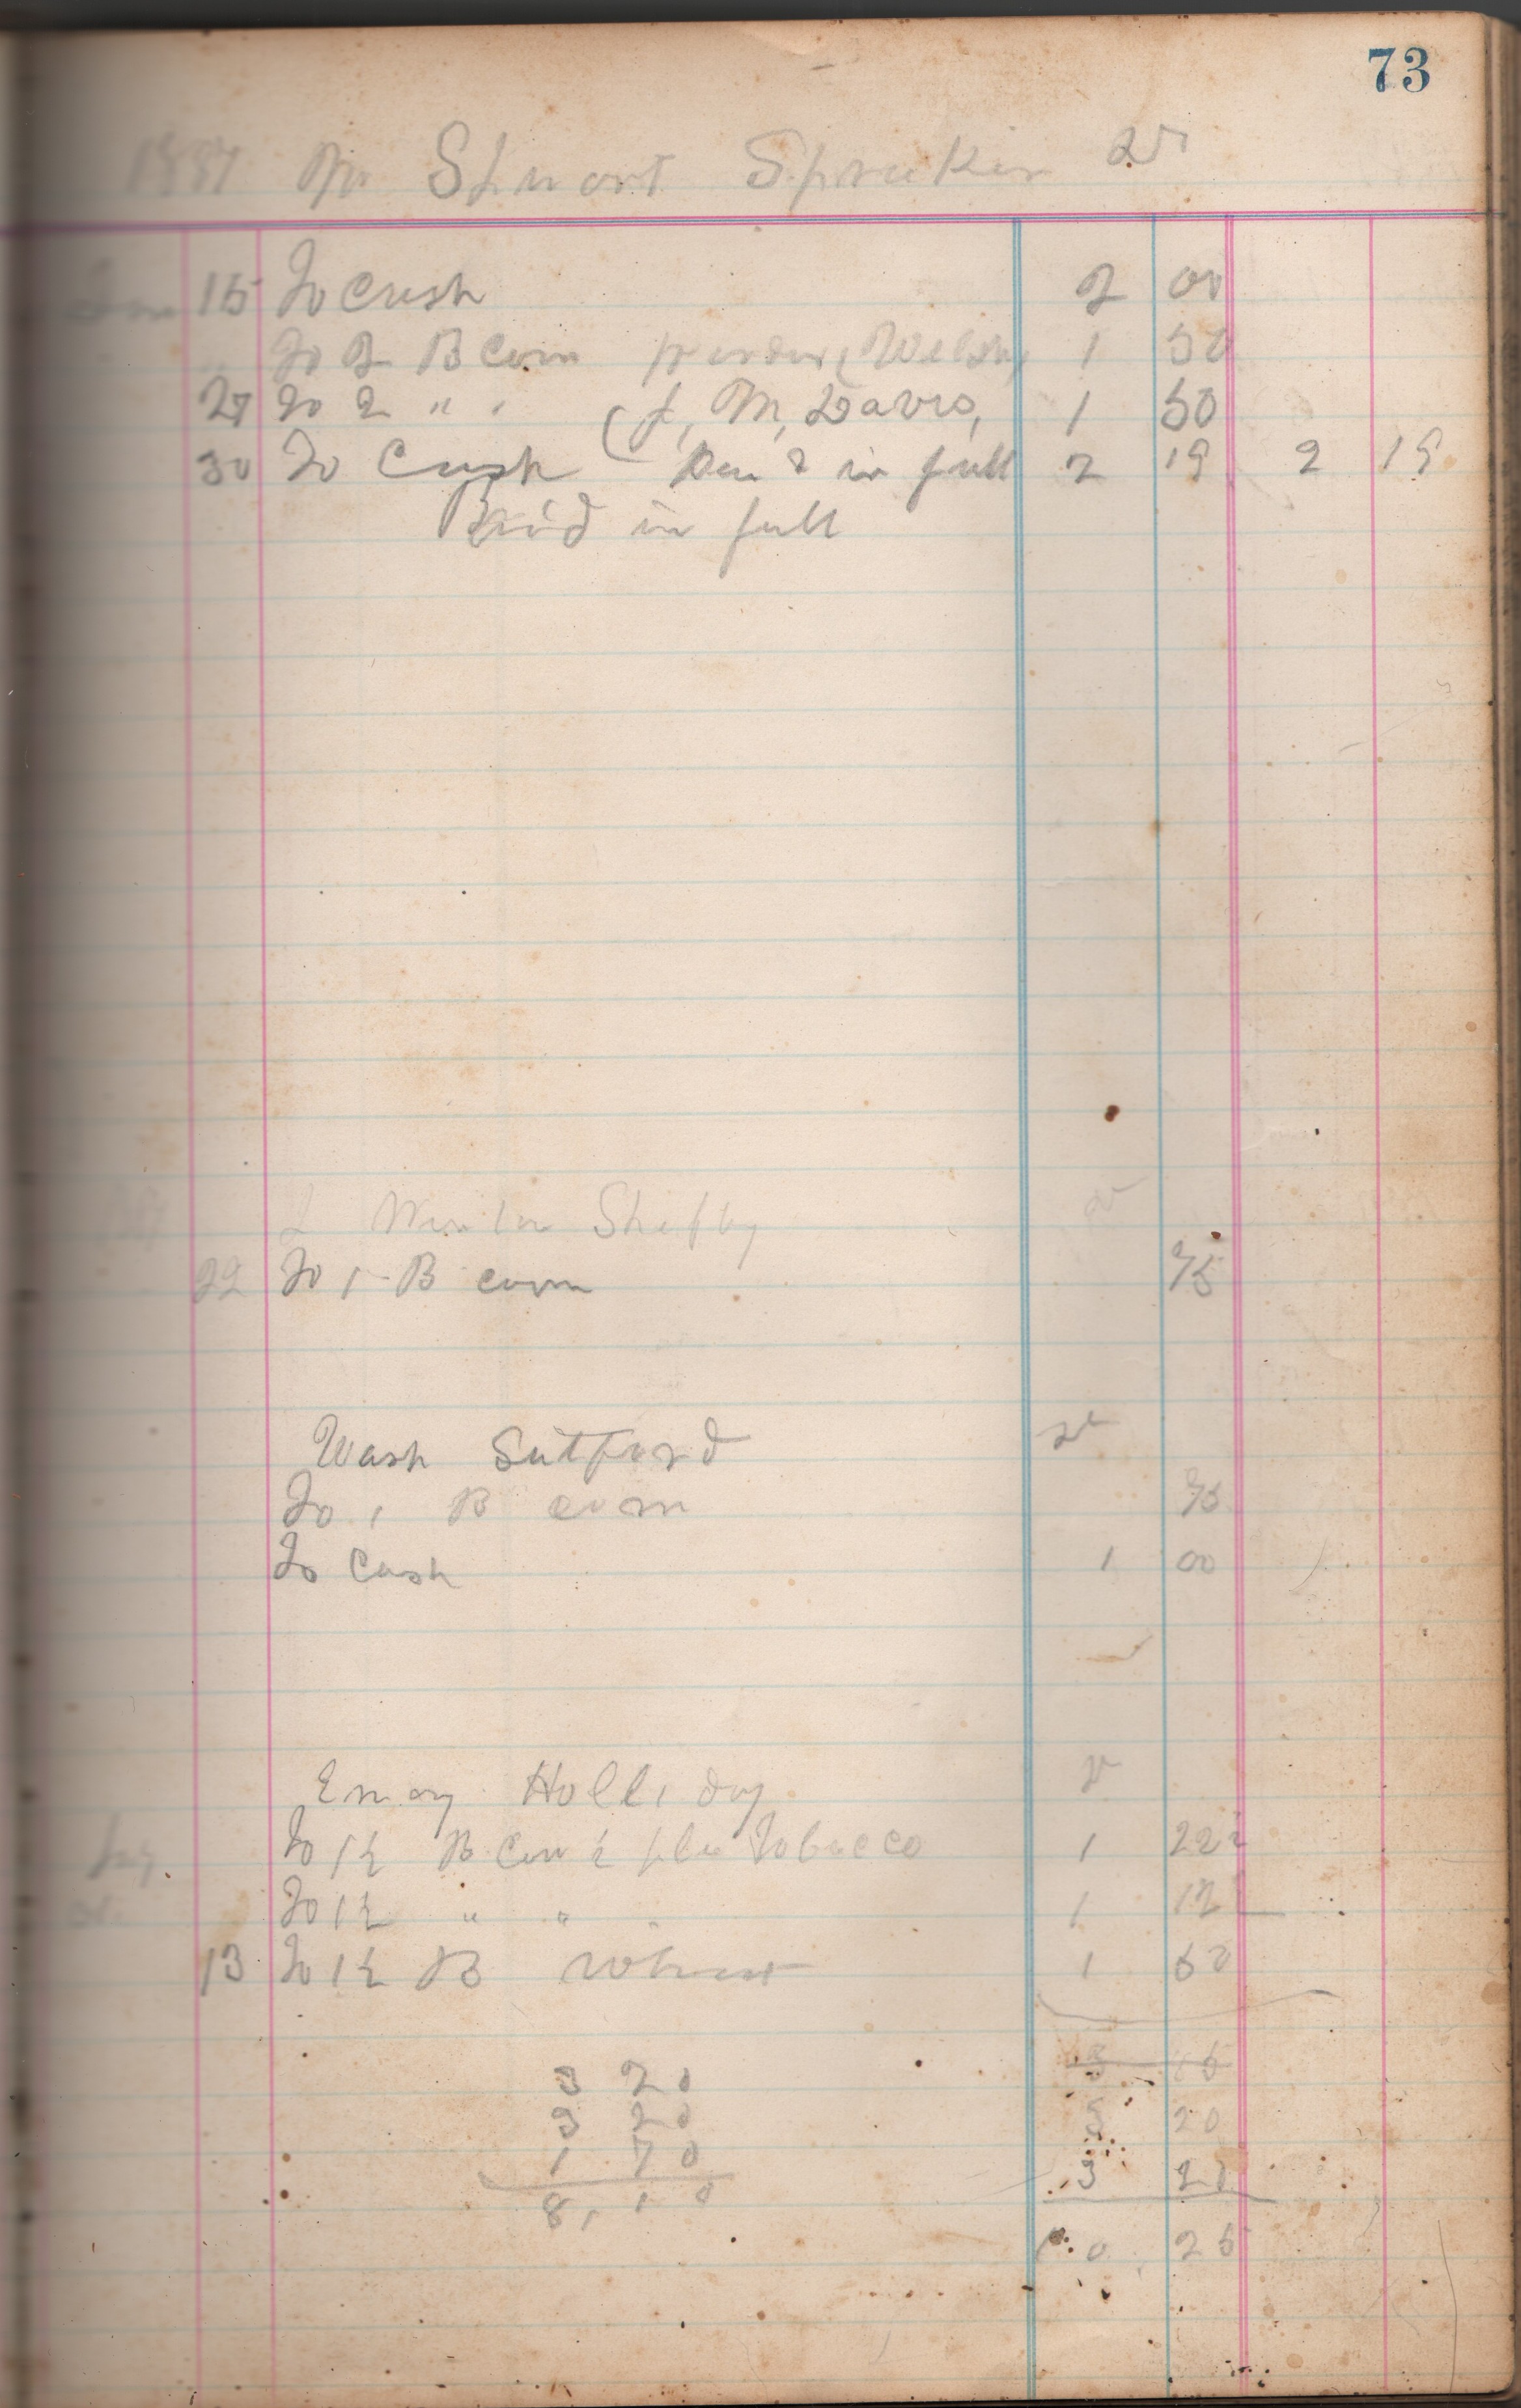 73
1887 Mr Stuart Spruker Dr
Jan 15 To Cash 2 00
" To 2 B Corn (Welsh) 1 50
27 To 2 " " (J, M, Davis, 1 50
30 To Cash in full 2 19 2 19
Paid in full
Shelby Dr
22 To 1 B corn 75
Wash Sutford Dr
To 1 B corn 75
To Cash 1 00
Emory Holliday Dr
To 1½ B Corn ½ Tobacco 1 22½
To 1½ " " 1 12
13 To 1½ B Wheat 1 50
3 20
3 20
1 70
8, 10
3 20
10 25